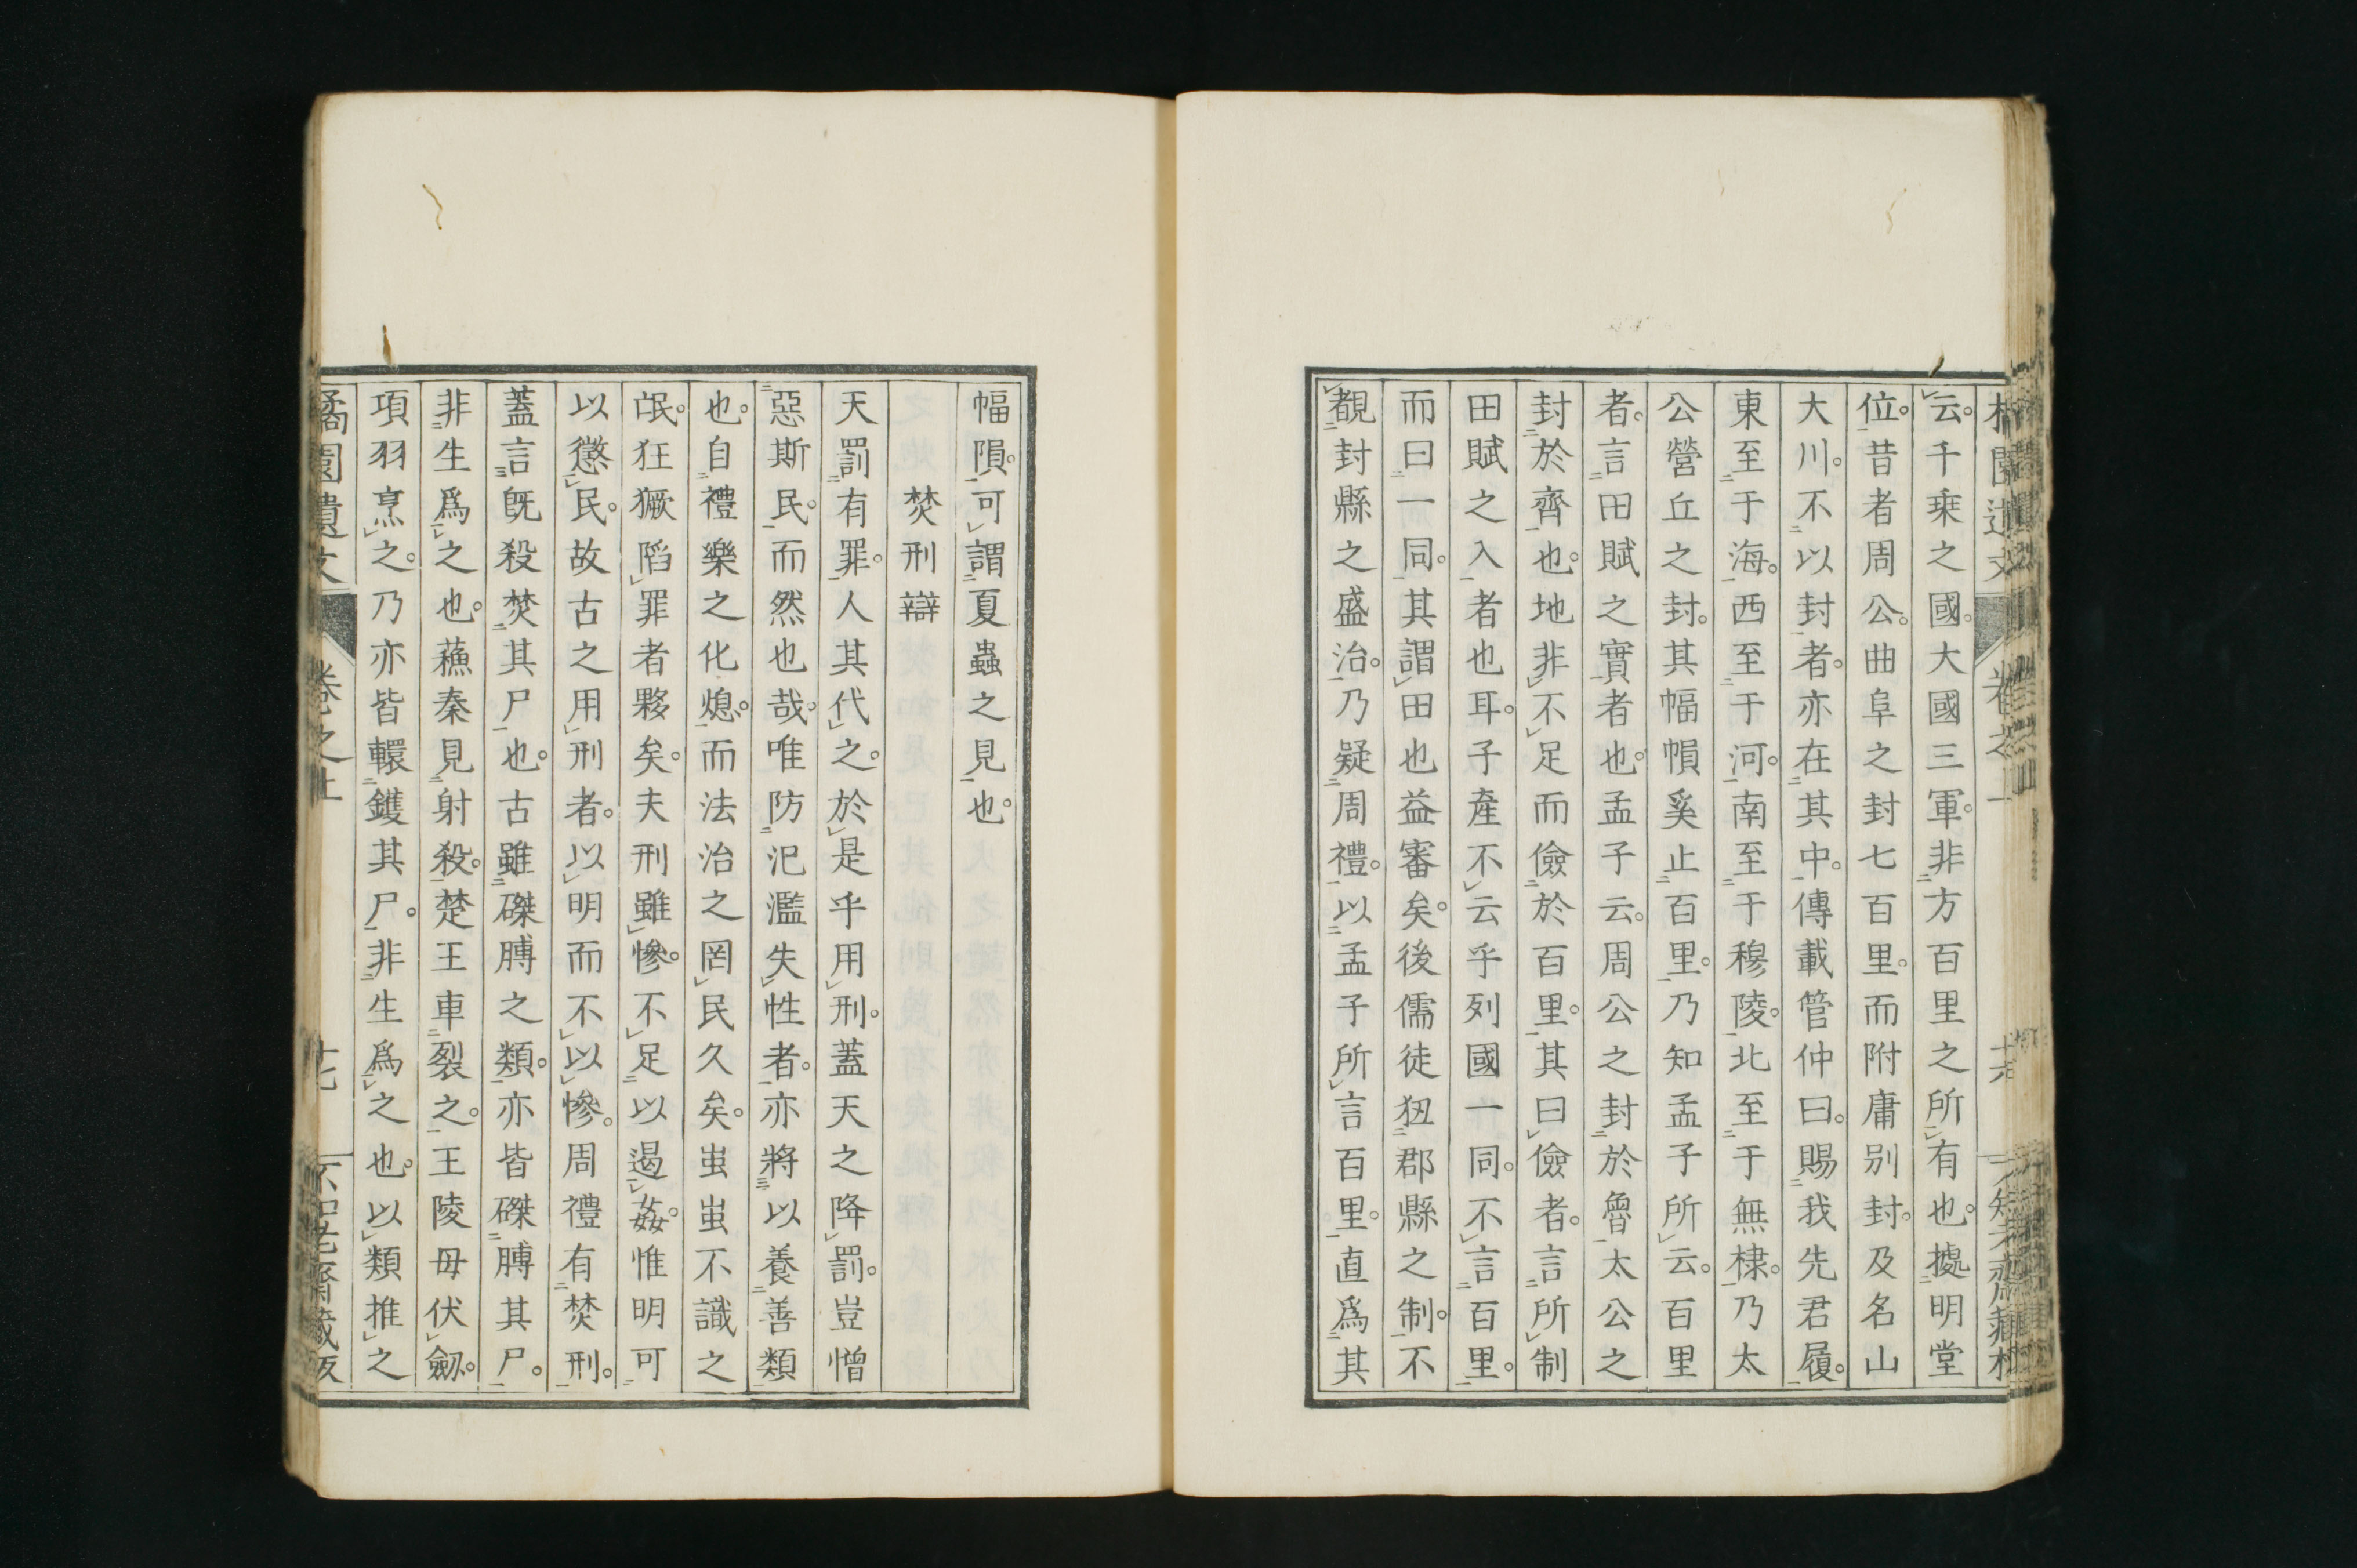 云。千乗之國。大國三軍。非方百里之所有也。據明堂
位。昔者周公。曲阜之封七百里。而附庸別封。及名山
大川。不以封者。亦在其中。傳載管仲曰。賜我先君履。
東至于海。西至于河。南至于穆陵。北至于無棣。乃太
公營丘之封。其幅幀奚止百里。乃知孟子所云。百里
者。言田賦之實者也。孟子云。周公之封於魯太公之
封於齊也。地非不足而儉於百里。其曰儉者。言所制
田賦之入者也耳。子產不云乎列國一同。不言百里。
而曰一同。其謂田也益審矣。後儒徒狃郡縣之制。不
覩封縣之盛治。乃疑周禮。以孟子所言百里。直爲其
幅隕。可謂夏蟲之見也。
焚刑辯
天罰有罪。人其代之。於是乎用刑。蓋天之降罰。豈憎
惡斯民。而然也哉。唯防汜濫失性者。亦將以養善類
也。自禮樂之化熄。而法治之罔民久矣。蚩蚩不識之
氓。狂獗陷罪者夥矣。夫刑雖慘。不足以遏姦。惟明可
以懲民。故古之用刑者。以明而不以慘。周禮有焚刑。
蓋言旣殺焚其尸也。古雖磔膊之類。亦皆磔膊其尸。
非生爲之也。蘓秦見射殺。楚王車裂之。王陵母伏劒。
項羽烹之。乃亦皆轘鑊其尸。非生爲之也。以類推之
橘園遺文 卷之上 十七 不知老齋藏板